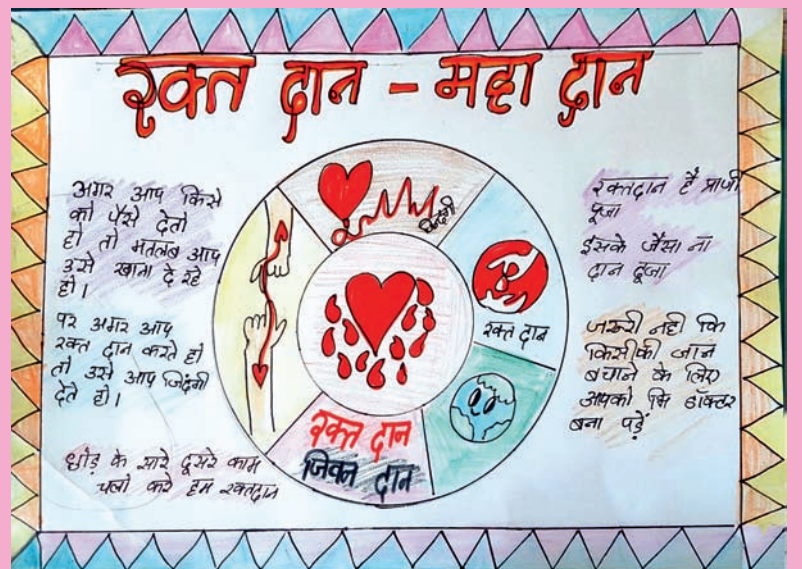 रक्त दान - महा दान
अगर आप किसे
को पैसे देतो
हो तो मतलब आप
उसे खाना दे रहे
हो।
पर अगर आप
रक्त दान करते हो
तो उसे आप जिंदगी
देते हो।
छोड़ के सारे दूसरे काम
चलो करे हम रक्तदान
जिंदगी
रक्त दान
रक्त दान
जिवन दान
रक्तदान है
पूजा
इसके जैसा ना
दान दूजा
जरूरी नही कि
किसीकी जान
बचाने के लिए
आपको कि डॉक्टर
बना पड़ें